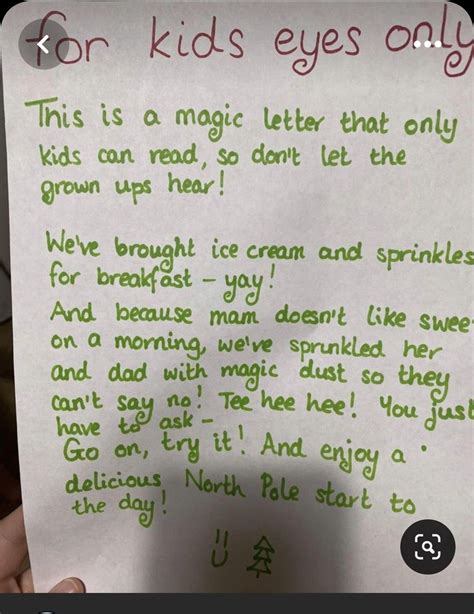 for kids eyes only
This is a magic letter that only
kids can read, so don't let the
grown ups hear!
We've brought ice cream and sprinkles
for breakfast - yay!
And because mam doesn't like swee
on a morning, we've sprunkled her
and dad with magic dust so they
can't say no! Tee hee hee! You just
have to ask -
Go on, try it! And enjoy a
delicious North Pole start to
the day!